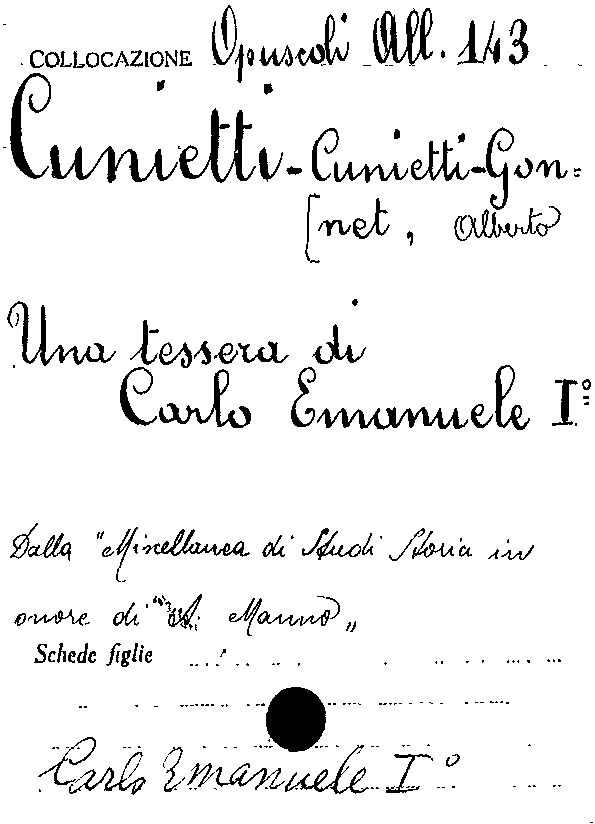 COLLOCAZIONE Opuscoli All. 143
Cunietti-Cunietti-Gon=
[net, Alberto
Una tessera di
Carlo Emanuele I°
Dalla "Miscellanea di Studi Storia in
onore di "A. Manno"
Schede figlie
Carlo Emanuele I°